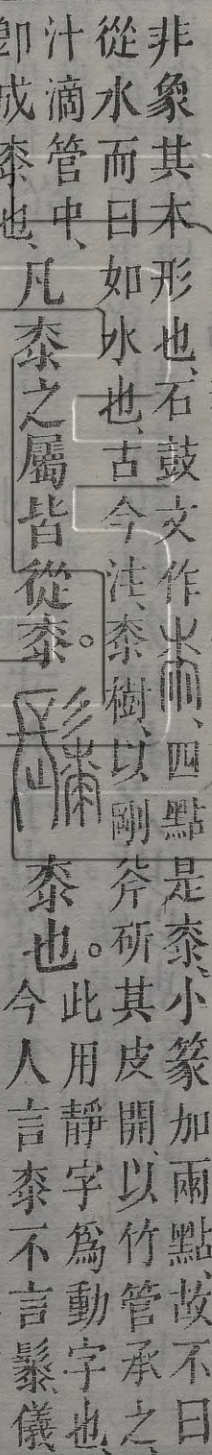 非象其木形也、石鼓文作、四點是桼、小篆加兩點、故不曰
從水而曰如水也、古今注、桼樹、以剛斧斫其皮開、以竹管承之
汁滴管中、
卽成桼也、
凡桼之屬皆從桼。
桼也。
此用靜字爲動字也、
今人言桼不言䰍、儀